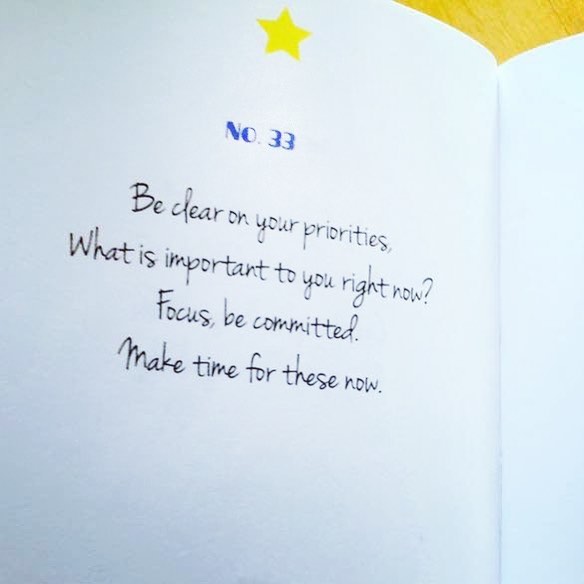 No. 33
Be clear on your priorities,
What is important to you right now?
Focus, be committed.
Make time for these now.